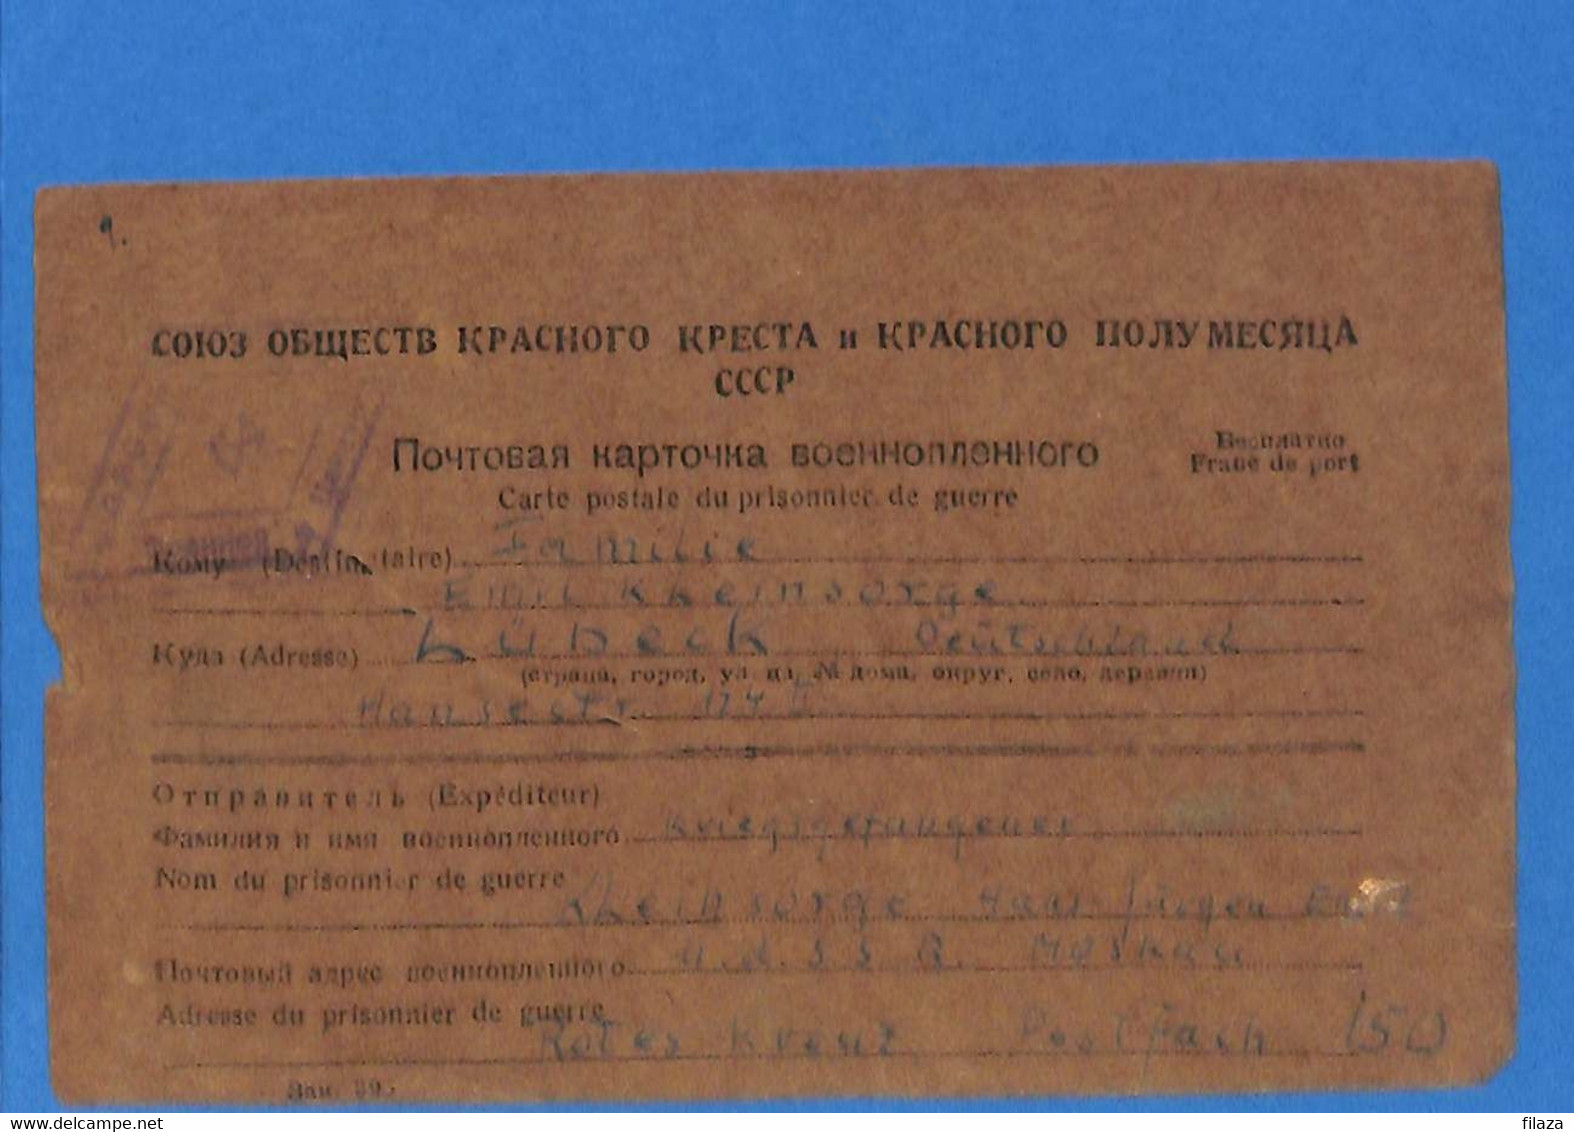 СОЮЗ ОБЩЕСТВ КРАСНОГО КРЕСТА и КРАСНОГО ПОЛУМЕСЯЦА
СССР
Почтовая карточка военнопленного
Бесплатно
Franc de port
Carte postale du prisonnier de guerre
Кому (Destinataire) Familie
Emil Kheinsorge
Куда (Adresse) Lübeck Deutschland
(страна, город, ул. № дома, округ, село, деревня)
Hansestr.
Отправитель (Expéditeur)
Фамилия и имя военнопленного Kriegsgefangener
Nom du prisonnier de guerre
Kheinsorge Hans Jürgen
Почтовый адрес военнопленного U.d.S S R. Moskau
Adresse du prisonnier de guerre
Rotes Kreuz Postfach 150
Зак.
www.delcampe.net
filaza